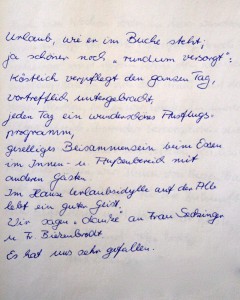 Urlaub, wie er im Buche steht;
ja schöner noch „rundum versorgt“:
Köstlich verpflegt den ganzen Tag,
vortrefflich untergebracht,
jeden Tag ein wunderschönes Ausflugs-
programm,
geselliges Beisammensein beim Essen
im Innen- u. Außenbereich mit
anderen Gästen.
Im Hause Urlaubsidylle auf der Alb
lebt ein guter Geist.
Wir sagen „Danke“ an Frau
u. Fr.
Es hat uns sehr gefallen.